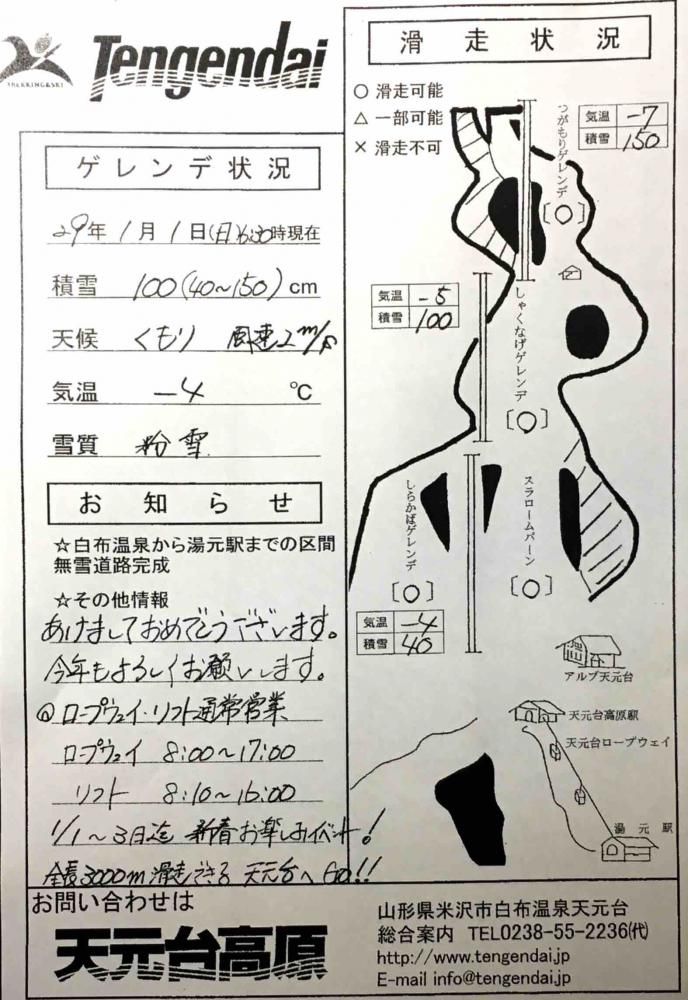 TREKKING&SKI
Tengendai
ゲレンデ状況
29年 1月 1日(日)6:30時現在
積雪 100(40〜150)cm
天候 くもり 風速2m/s
気温 -4 ℃
雪質 粉雪
お知らせ
☆白布温泉から湯元駅までの区間
無雪道路完成
☆その他情報
あけましておめでとうございます。
今年もよろしくお願いします。
◎ロープウェイ・リフト通常営業
ロープウェイ 8:00〜17:00
リフト 8:10〜16:00
1/1〜3日迄 新春お楽しみイベント!
全長3000m滑走できる 天元台へGO!!
滑走状況
○ 滑走可能
△ 一部可能
× 滑走不可
つがもりゲレンデ
[○]
気温 -7
積雪 150
気温 -5
積雪 100
しゃくなげゲレンデ
[○]
しらかばゲレンデ
[○]
スラロームバーン
[○]
気温 -4
積雪 40
アルブ天元台
天元台高原駅
天元台ロープウェイ
湯元駅
お問い合わせは
天元台高原
山形県米沢市白布温泉天元台
総合案内 TEL0238-55-2236(代)
http://www.tengendai.jp
E-mail info@tengendai.jp